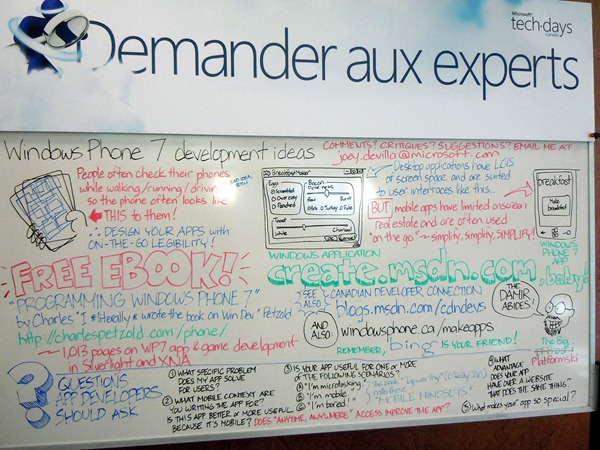 Microsoft
tech·days
Canada
Demander aux experts
Windows Phone 7 development ideas
COMMENTS? CRITIQUES? SUGGESTIONS? EMAIL ME AT
joey.devilla@microsoft.com
People often check their phones
while walking/running/driving
so the phone often looks like
THIS to them!
∴ DESIGN YOUR APPS with
ON-THE-GO LEGIBILITY!
BreakfastMaker
Eggs
Scrambled
Over easy
Poached
Bacon
Doneness
Raw
Burnt
Pork
Turkey
Fake
Toast
White
Charcoal
WINDOWS APPLICATION
Desktop applications have LOTS
of screen space and are suited
to user interfaces like this...
BUT mobile apps have limited onscreen
real estate and are often used
"on the go" ~ simplify, simplify, SIMPLIFY!
breakfast
Make
breakfast!
WINDOWS
PHONE 7
APP
FREE EBOOK!
"PROGRAMMING WINDOWS PHONE 7"
by Charles "I *literally* wrote the book on Win Dev" Petzold
http://charlespetzold.com/phone/
~ 1,013 pages on WP7 app & game development
in Silverlight and XNA
create.msdn.com, baby!
SEE ALSO
CANADIAN DEVELOPER CONNECTION
blogs.msdn.com/cdndevs
AND ALSO:
windowsphone.ca/makeapps
REMEMBER, bing IS YOUR FRIEND!
THE
DAMIR
ABIDES!
The Big
Platformski
? QUESTIONS
APP DEVELOPERS
SHOULD ASK
① WHAT SPECIFIC PROBLEM
DOES MY APP SOLVE
FOR USERS?
② WHAT MOBILE CONTEXT ARE
YOU WRITING THE APP FOR?
IS THIS APP BETTER or MORE USEFUL
BECAUSE IT'S MOBILE?
DOES "ANYTIME, ANYWHERE" ACCESS IMPROVE THE APP?
③ IS YOUR APP USEFUL FOR ONE or MORE
of THE FOLLOWING SCENARIOS?
"I'm microtasking!"
"I'm mobile."
"I'm bored!"
The book "Tapworthy" (O'Reilly, 2010)
calls these
"MOBILE MINDSETS"
④ WHAT
ADVANTAGE
DOES YOUR APP
HAVE OVER A WEBSITE
THAT DOES THE SAME THING?
⑤ What makes your app so special?